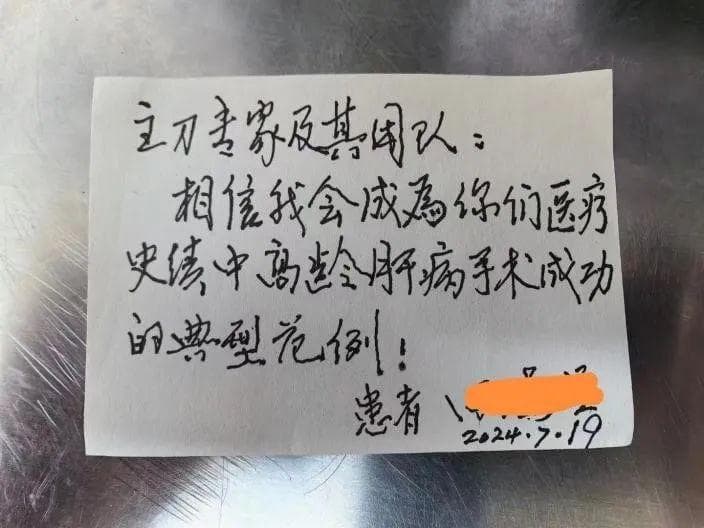 主刀专家及其团队：
相信我会成為你们医疗
史绩中高龄肝病手术成功
的典型范例！
患者
2024.7.19